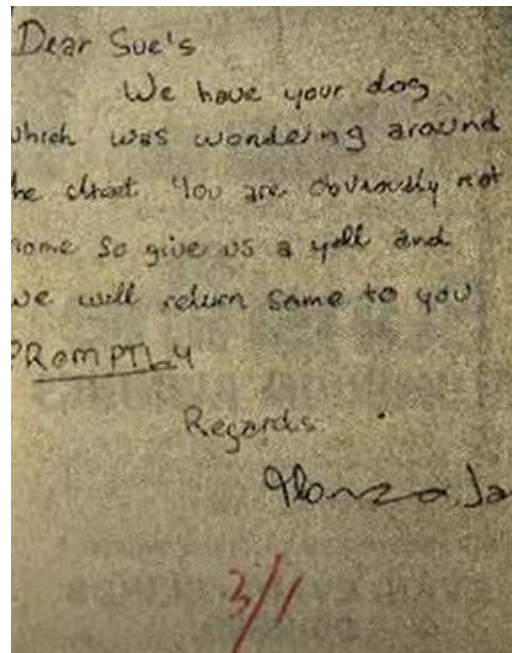 Dear Sue's
We have your dog
which was wondeing around
he street You are obviously not
home so give us a yell and
we will return same to you
PROMPTLY
Regards
3/1